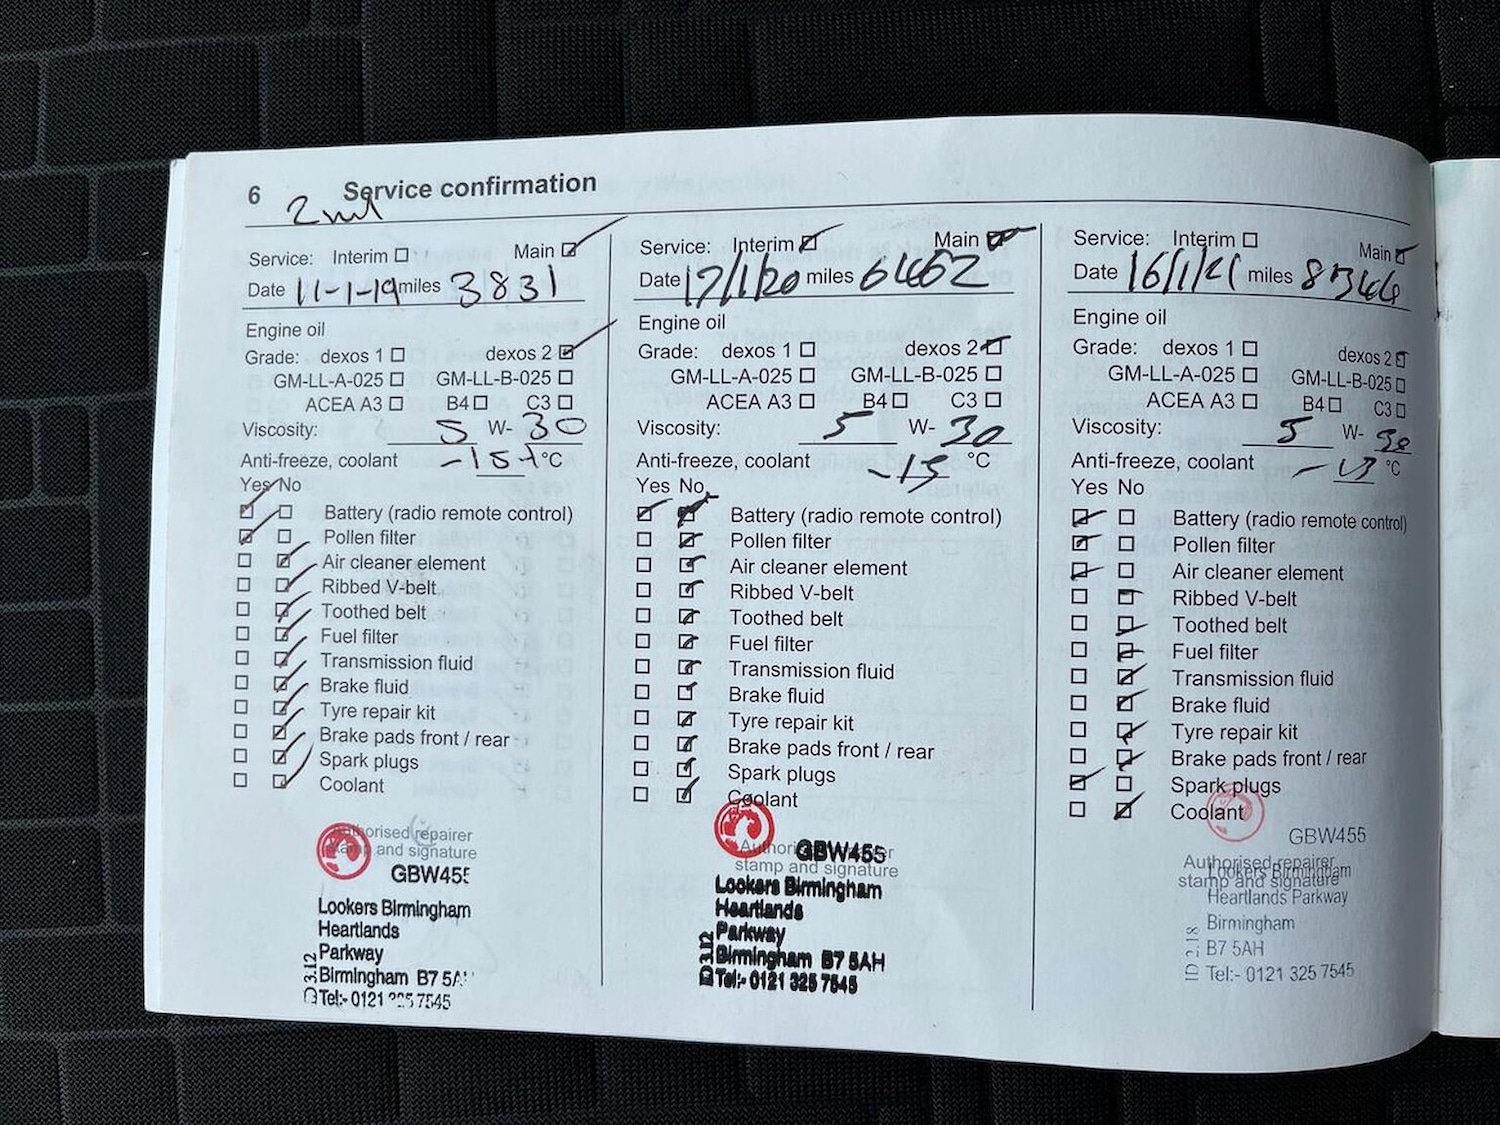 6 Service confirmation
2nd
Service: Interim Main
Date 11-1-19 miles 3831
Engine oil
Grade: dexos 1 dexos 2
GM-LL-A-025 GM-LL-B-025
ACEA A3 B4 C3
Viscosity: 5 W- 30
Anti-freeze, coolant -15+ °C
Yes No
Battery (radio remote control)
Pollen filter
Air cleaner element
Ribbed V-belt
Toothed belt
Fuel filter
Transmission fluid
Brake fluid
Tyre repair kit
Brake pads front / rear
Spark plugs
Coolant
Authorised repairer
stamp and signature
GBW455
Lookers Birmingham
Heartlands
Parkway
Birmingham B7 5A
Tel:- 0121 325 7545
ID 3.12
Service: Interim Main
Date 17/1/20 miles 6462
Engine oil
Grade: dexos 1 dexos 2
GM-LL-A-025 GM-LL-B-025
ACEA A3 B4 C3
Viscosity: 5 W- 30
Anti-freeze, coolant -15 °C
Yes No
Battery (radio remote control)
Pollen filter
Air cleaner element
Ribbed V-belt
Toothed belt
Fuel filter
Transmission fluid
Brake fluid
Tyre repair kit
Brake pads front / rear
Spark plugs
Coolant
Authorised repairer
stamp and signature
GBW455
Lookers Birmingham
Heartlands
Parkway
Birmingham B7 5AH
Tel:- 0121 325 7545
ID 3.12
Service: Interim Main
Date 16/1/21 miles
Engine oil
Grade: dexos 1 dexos 2
GM-LL-A-025 GM-LL-B-025
ACEA A3 B4 C3
Viscosity: 5 W- 30
Anti-freeze, coolant °C
Yes No
Battery (radio remote control)
Pollen filter
Air cleaner element
Ribbed V-belt
Toothed belt
Fuel filter
Transmission fluid
Brake fluid
Tyre repair kit
Brake pads front / rear
Spark plugs
Coolant
GBW455
Authorised repairer
stamp and signature
Lookers Birmingham
Heartlands Parkway
Birmingham
B7 5AH
Tel:- 0121 325 7545